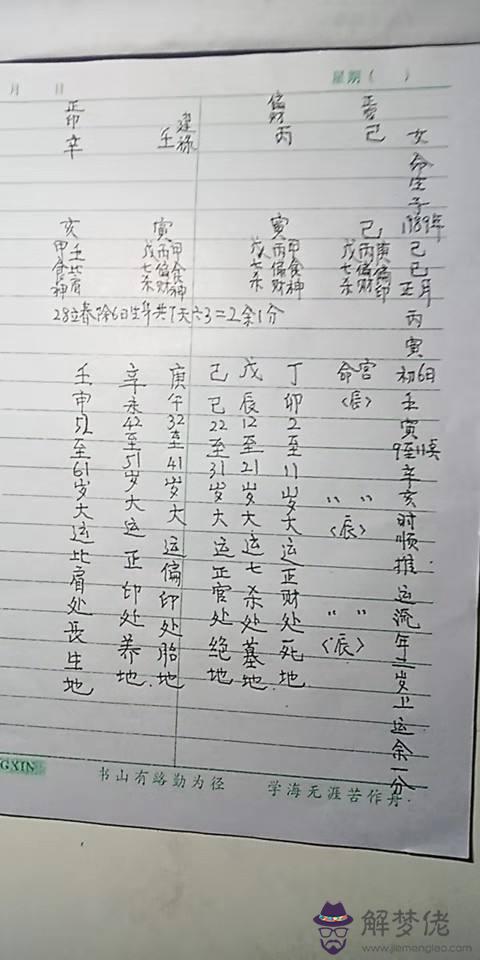 月 日 星期( )
女命生于1989年己巳正月丙寅初6日壬寅9至11点辛亥时顺推运流年二岁上运余一分
己
己
戊丙庚
七偏偏
杀财印
命宫
〈辰〉
〃 〃
〈辰〉
〃 〃
〈辰〉
偏财
丙
寅
戊丙甲
七偏食
杀财神
建禄
壬
寅
戊丙甲
七偏食
杀财神
正印
辛
亥
甲壬
食比
神肩
28立春除6日生年共7天六3=2余1分
丁卯2至11岁大运正财处死地
戊辰12至21岁大运七杀处墓地
己巳22至31岁大运正官处绝地
庚午32至41岁大运偏印处胎地
辛未42至51岁大运正印处养地
壬申52至61岁大运比肩处长生地
GXIN 书山有路勤为径 学海无涯苦作舟
解梦佬
www.jiemenglao.com